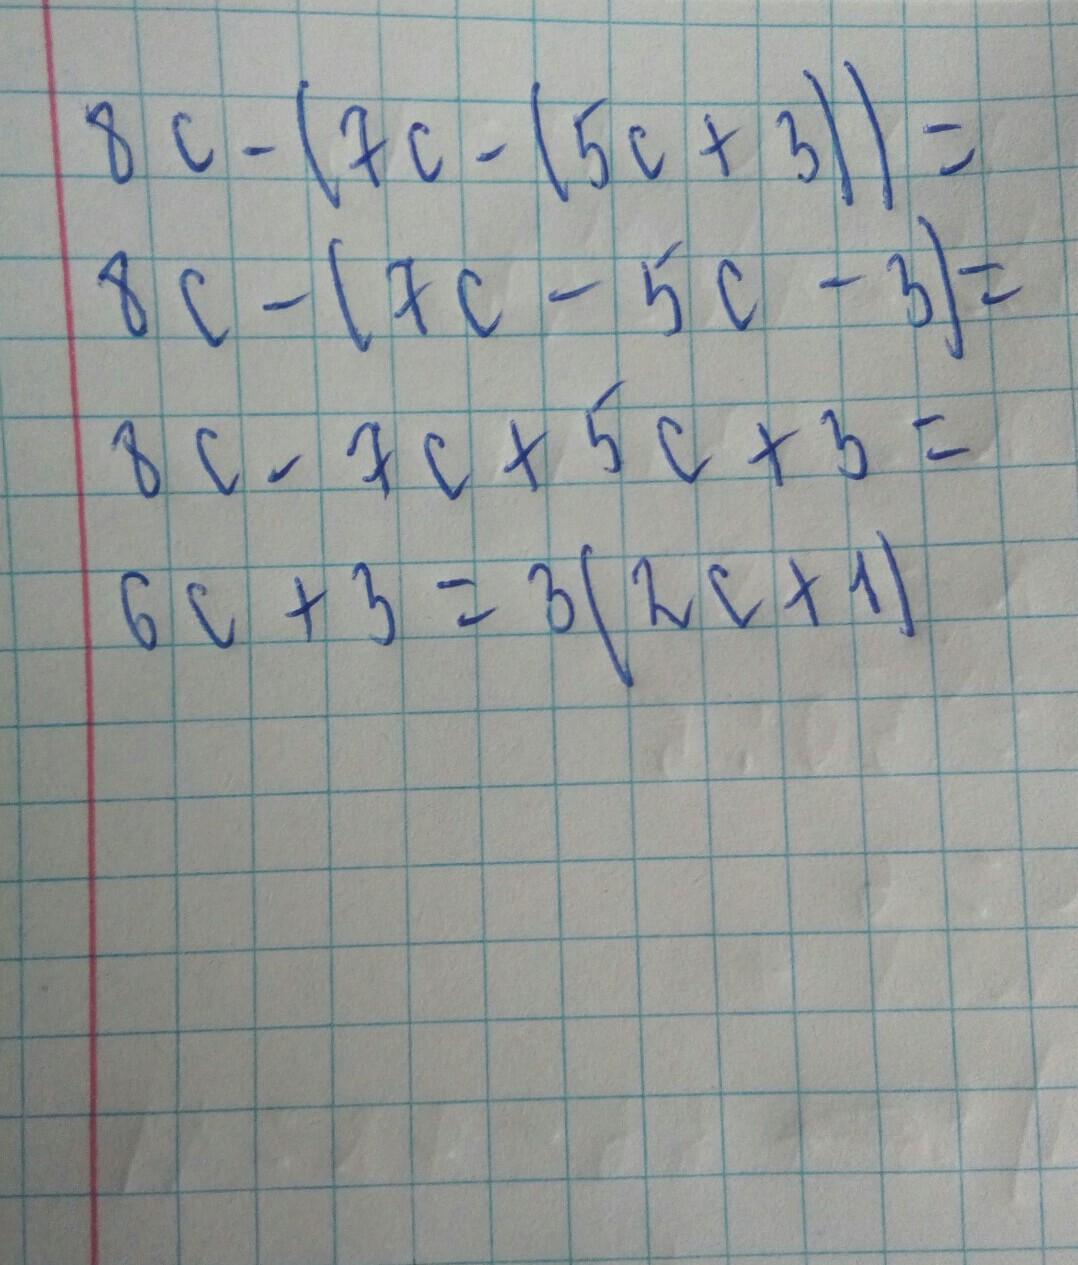 8c-(7c-(5c+3))=
8c-(7c-5c-3)=
8c-7c+5c+3=
6c+3=3(2c+1)